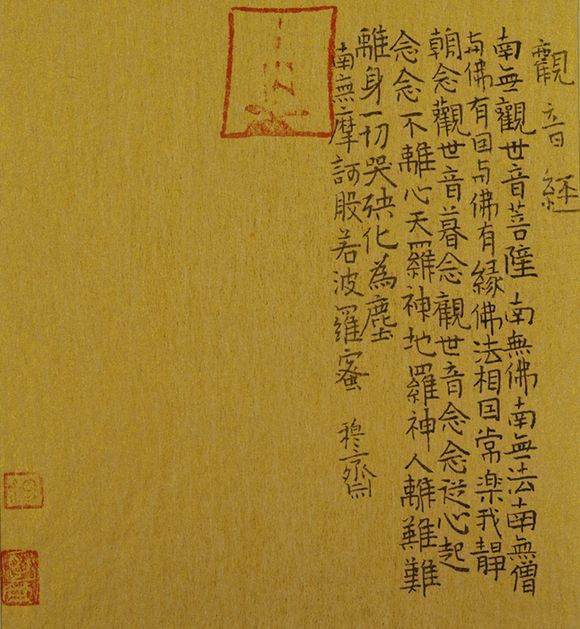 觀音經
南無觀世音菩薩 南無佛南無法南無僧
与佛有囙与佛有緣佛法相囙常楽我靜
朝念觀世音暮念觀世音念念従心起
念念不離心天羅神地羅神人離難難
離身一切哭殃化為塵
南無摩訶般若波羅蜜 穆齋